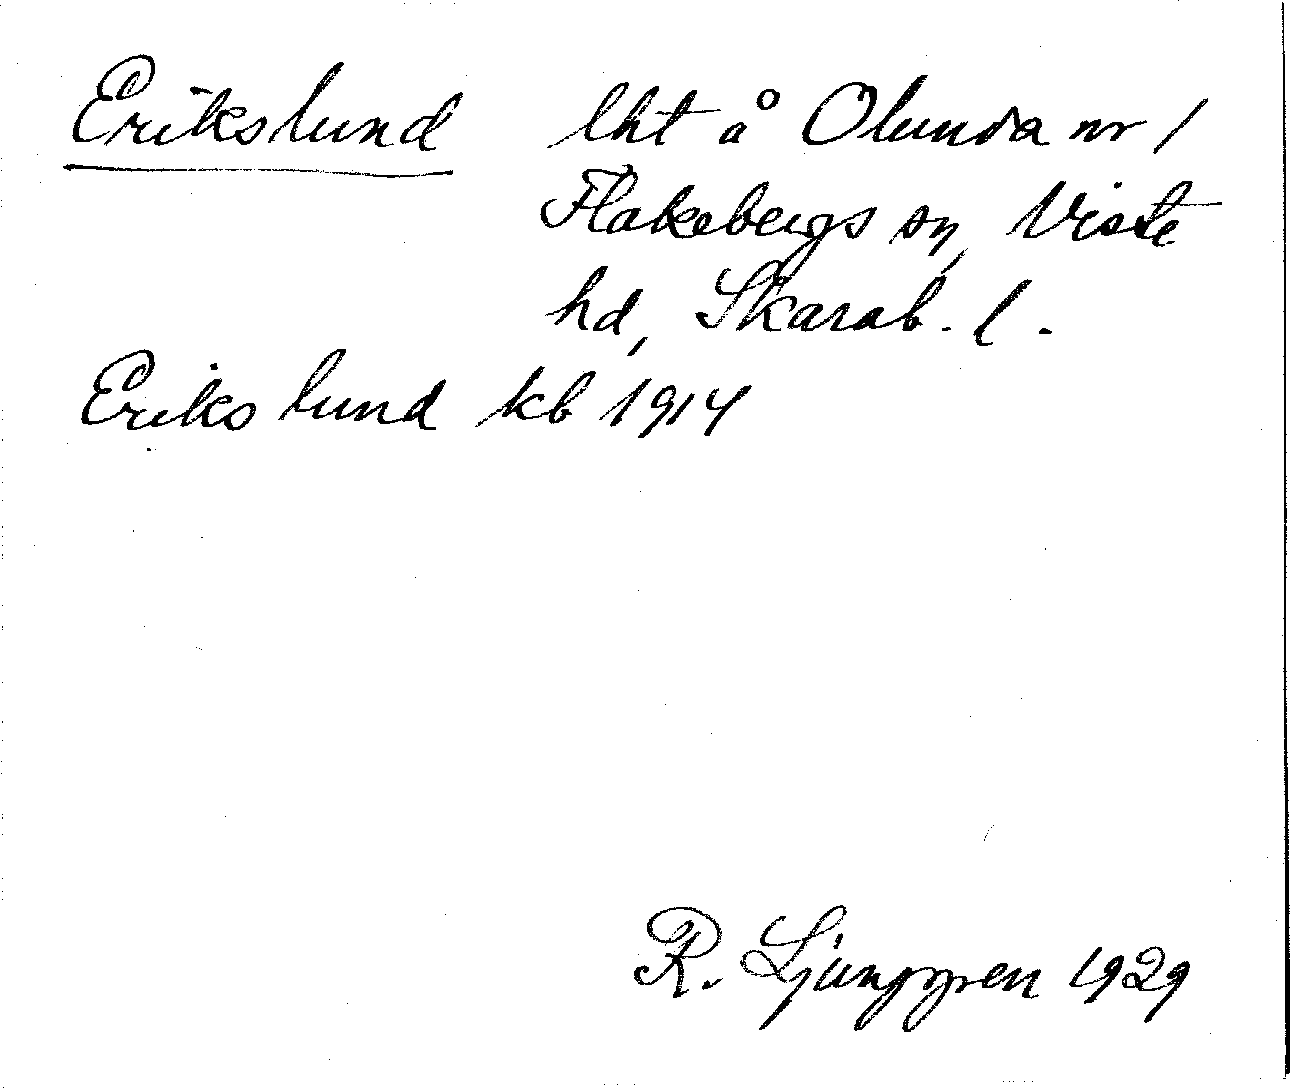 Erikslund lht å Olunda nr 1
Flakebergs sn, Viste
hd, Skarab. l.
Erikslund kb 1914
R. Ljunggren 1929